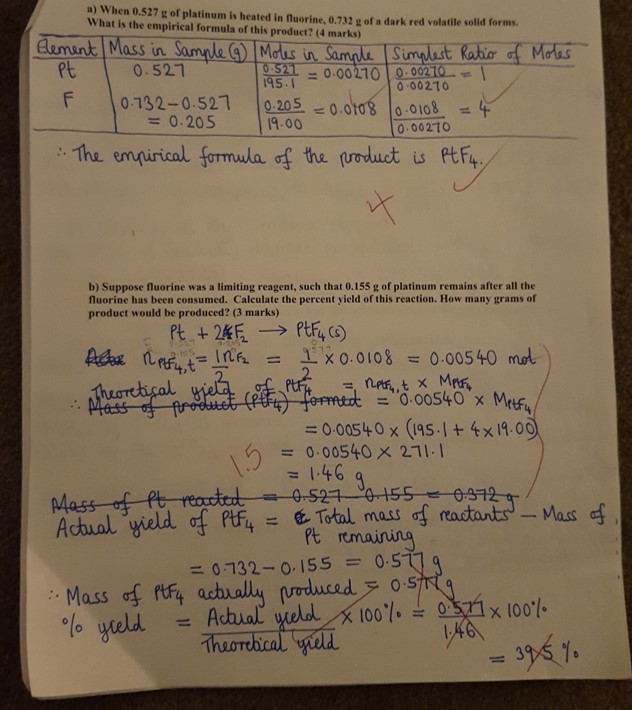 a) When 0.527 g of platinum is heated in fluorine, 0.732 g of a dark red volatile solid forms.
What is the empirical formula of this product? (4 marks)
Element | Mass in Sample (g) | Moles in Sample | Simplest Ratio of Moles
Pt | 0.527 | 0.527/195.1 = 0.00270 | 0.00270/0.00270 = 1
F | 0.732-0.527 = 0.205 | 0.205/19.00 = 0.0108 | 0.0108/0.00270 = 4
∴ The empirical formula of the product is PtF₄.
4
b) Suppose fluorine was a limiting reagent, such that 0.155 g of platinum remains after all the
fluorine has been consumed. Calculate the percent yield of this reaction. How many grams of
product would be produced? (3 marks)
Pt + 2F₂ → PtF₄(s)
n PtF₄,t = 1/2 n F₂ = 1/2 × 0.0108 = 0.00540 mol
Theoretical yield of PtF₄ = n PtF₄,t × M PtF₄
∴ Mass of product (PtF₄) formed = 0.00540 × M PtF₄
= 0.00540 × (195.1 + 4×19.00)
= 0.00540 × 271.1
1.5
= 1.46 g
Mass of Pt reacted = 0.527 - 0.155 = 0.372 g
Actual yield of PtF₄ = Total mass of reactants - Mass of
Pt remaining
= 0.732 - 0.155 = 0.577 g
∴ Mass of PtF₄ actually produced = 0.577 g
% yield = Actual yield/Theoretical yield × 100% = 0.577/1.46 × 100%
= 39.5 %